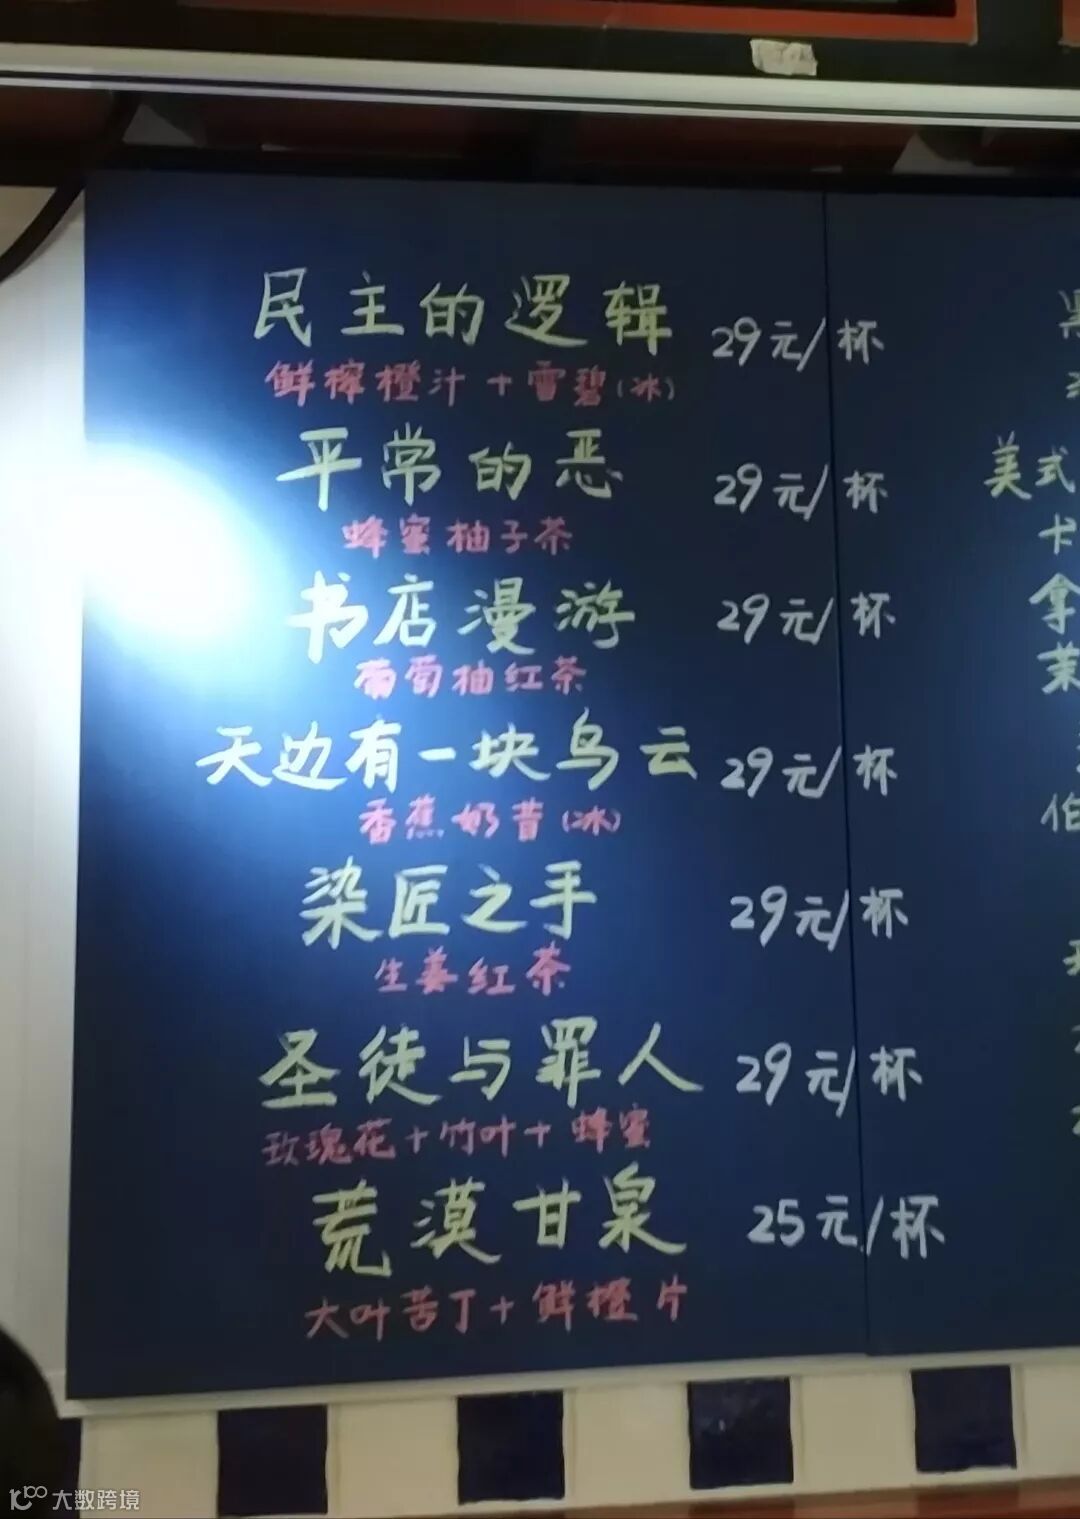 民主的逻辑 29元/杯
鲜榨橙汁+雪碧(冰)
平常的恶 29元/杯
蜂蜜柚子茶
书店漫游 29元/杯
葡萄柚红茶
天边有一块乌云 29元/杯
香蕉奶昔(冰)
染匠之手 29元/杯
生姜红茶
圣徒与罪人 29元/杯
玫瑰花+竹叶+蜂蜜
荒漠甘泉 25元/杯
大叶苦丁+鲜橙片
黑
美式
卡
拿
茉
伯
大数跨境